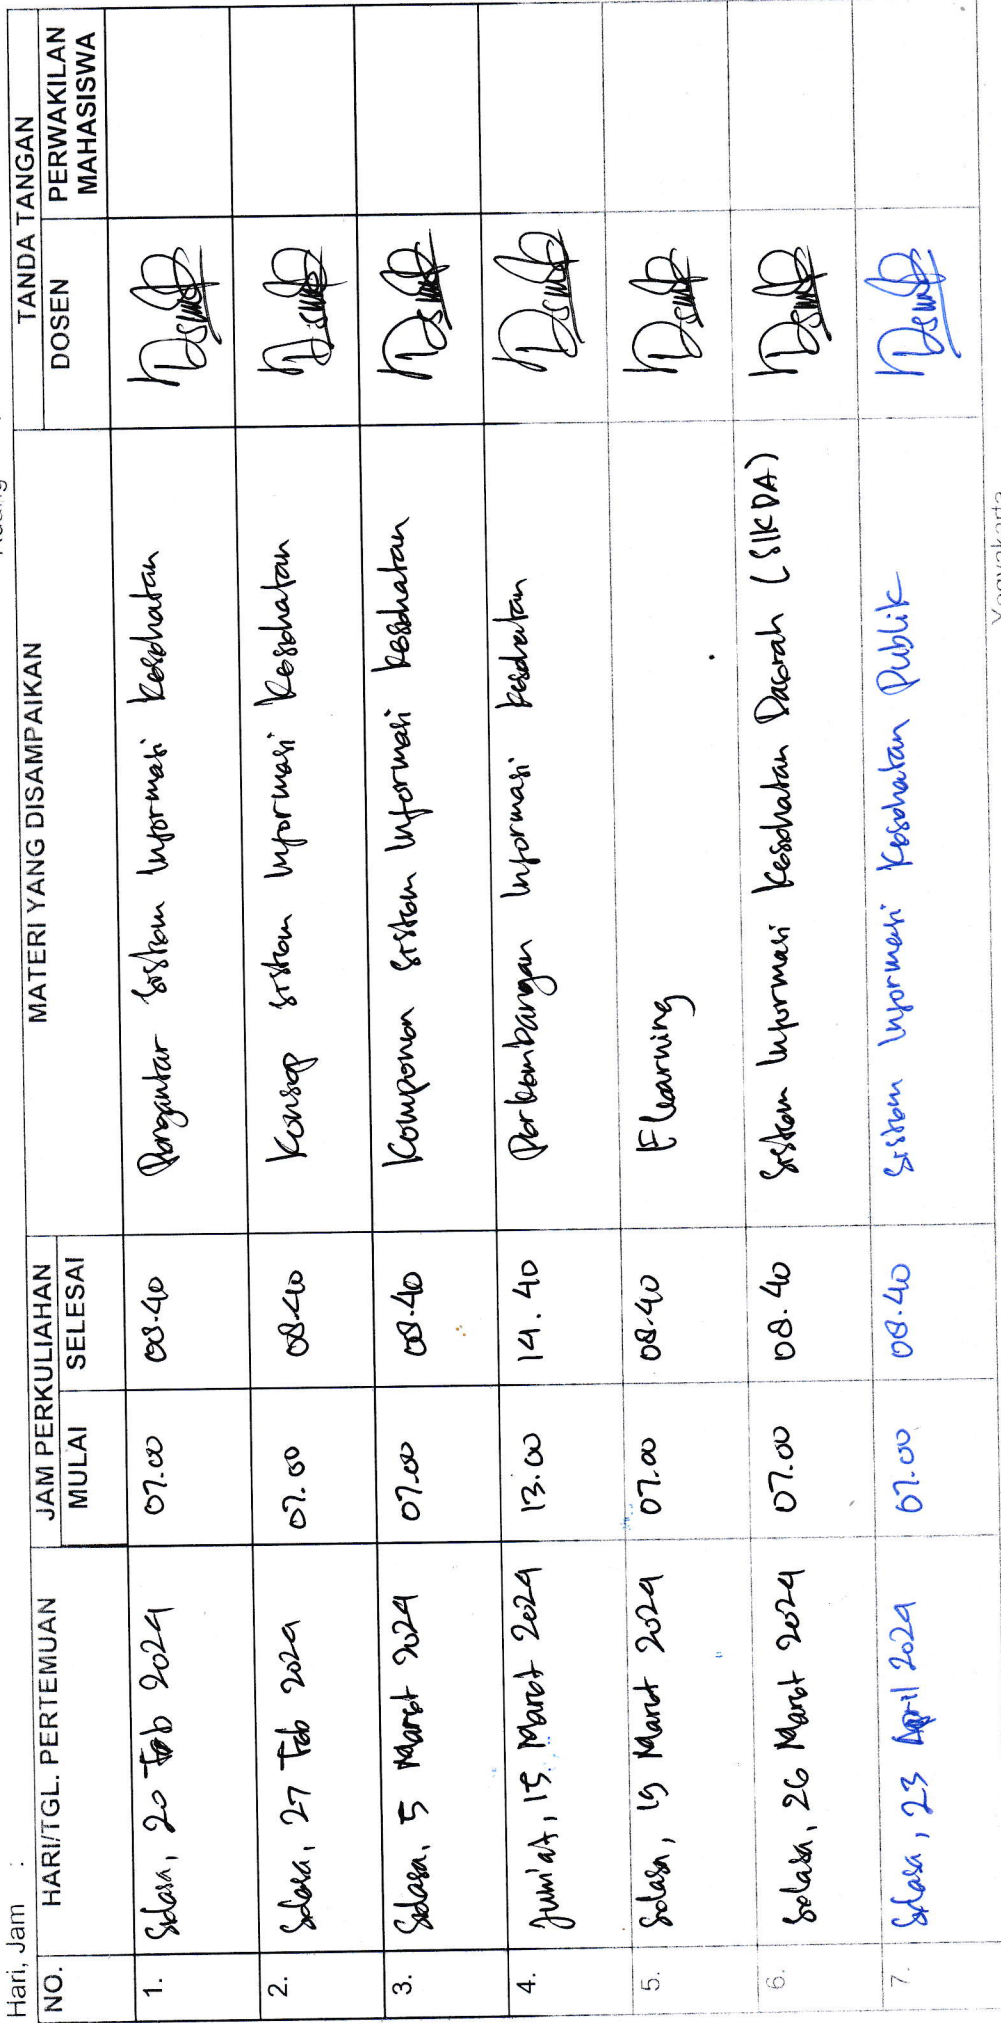 Hari, Jam :
NO. HARI/TGL. PERTEMUAN JAM PERKULIAHAN MATERI YANG DISAMPAIKAN TANDA TANGAN
MULAI SELESAI DOSEN PERWAKILAN MAHASISWA
1. Selasa, 20 Feb 2024 07.00 08.40 Pengantar Sistem Informasi Kesehatan
2. Selasa, 27 Feb 2024 07.00 08.40 Konsep Sistem Informasi Kesehatan
3. Selasa, 5 Maret 2024 07.00 08.40 Komponen Sistem Informasi Kesehatan
4. Jum'at, 15 Maret 2024 13.00 14.40 Perkembangan Informasi Kesehatan
5. Selasa, 19 Maret 2024 07.00 08.40 Elearning
6. Selasa, 26 Maret 2024 07.00 08.40 Sistem Informasi Kesehatan Daerah (SIKDA)
7. Selasa, 23 April 2024 07.00 08.40 Sistem Informasi Kesehatan Publik
Yogyakarta